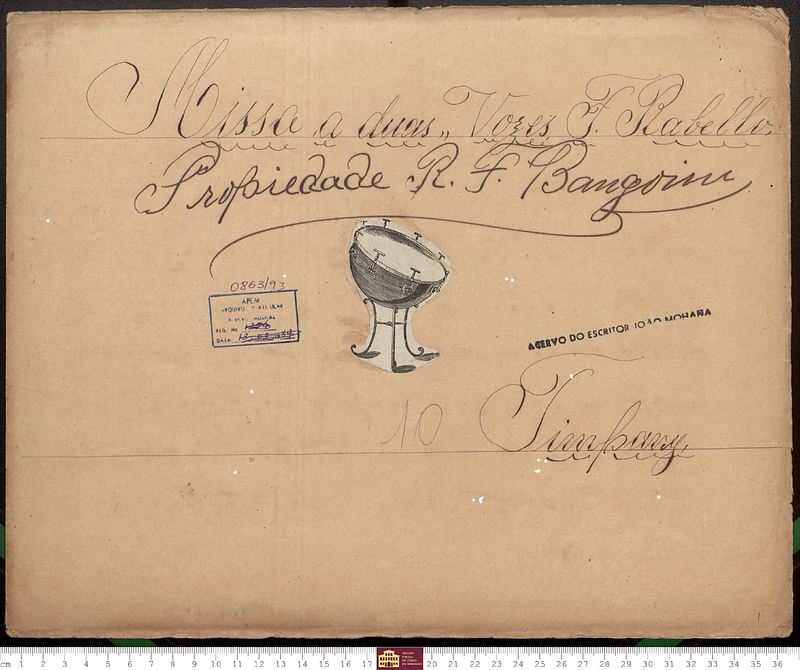 Missa a duas „ Vozes, F. Rabello.
Propiedade R. F.
0863/93
APEM
ACERVO MUSICAL
REG. No
DATA
ACERVO DO ESCRITOR JOÃO MOHANA
10
Timpany,
cm 1 2 3 4 5 6 7 8 9 10 11 12 13 14 15 16 17 20 21 22 23 24 25 26 27 28 29 30 31 32 33 34 35 36